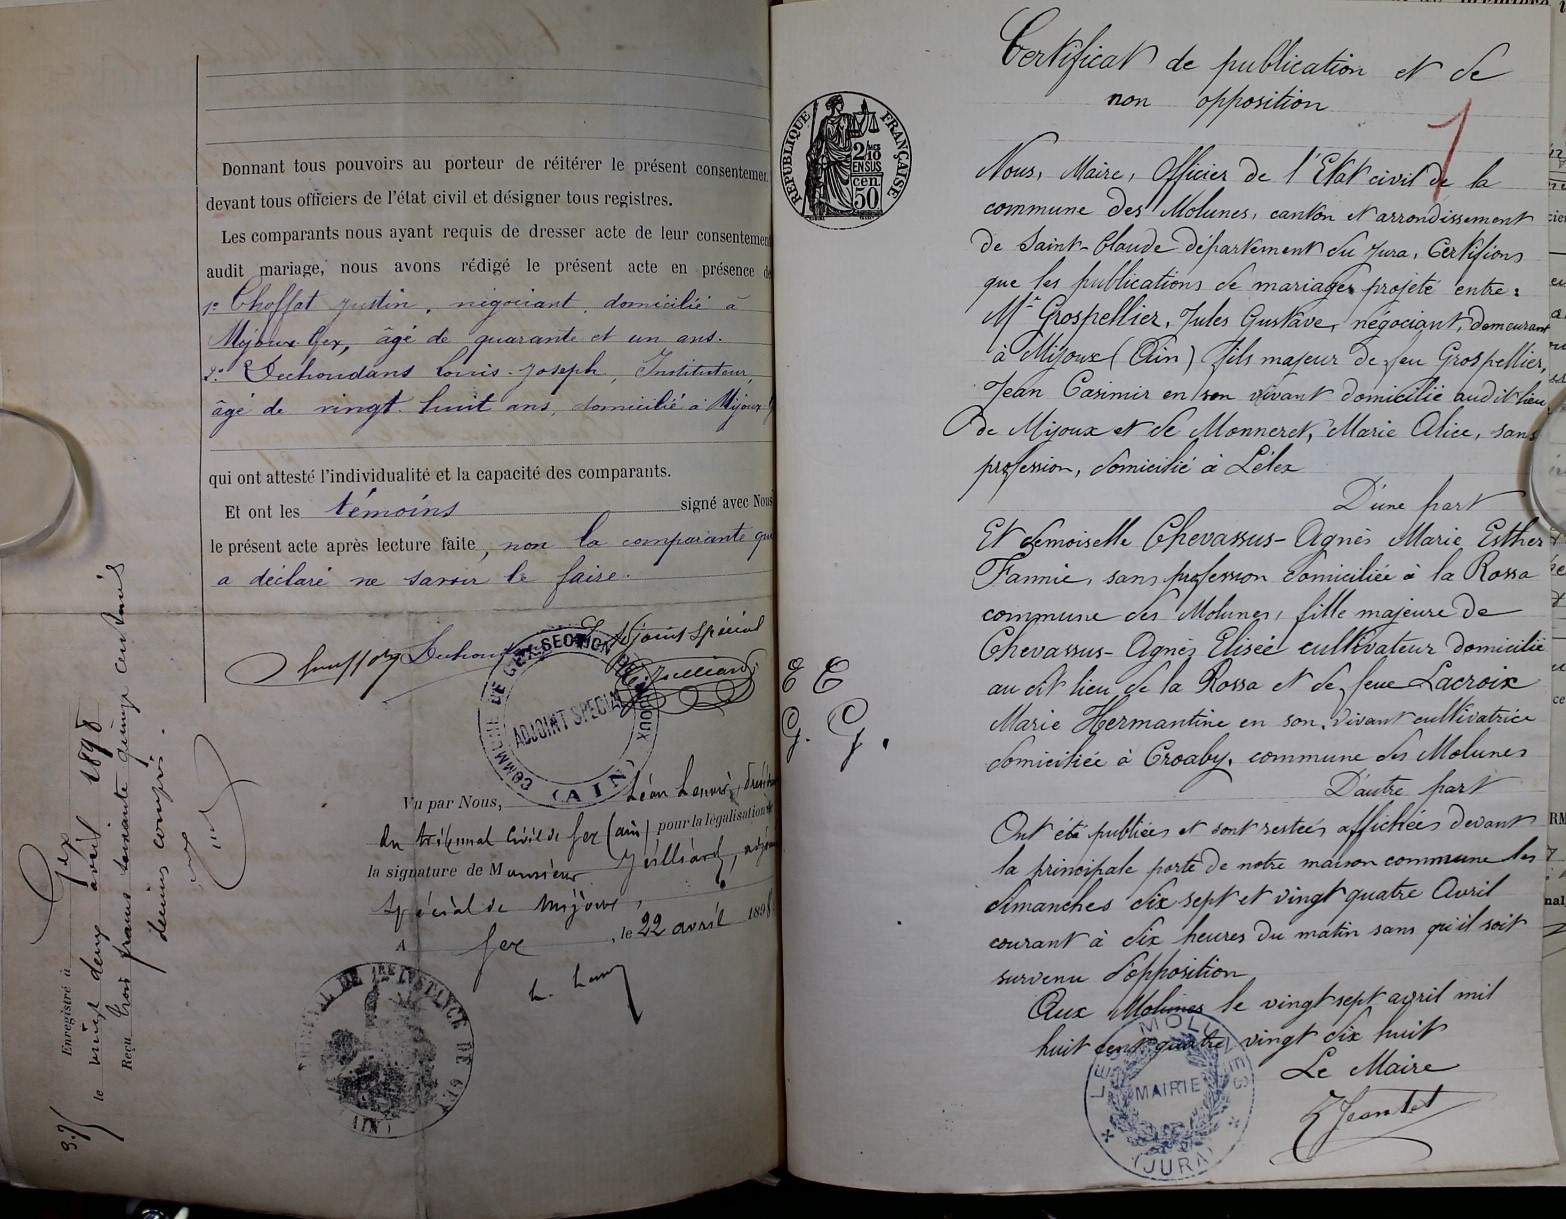 Donnant tous pouvoirs au porteur de réitérer le présent consentemen
devant tous officiers de l'état civil et désigner tous registres.
Les comparants nous ayant requis de dresser acte de leur consentemen
audit mariage, nous avons rédigé le présent acte en présence de
1° Choffat Justin, négociant, domicilié à
Mijoux-Gex, âgé de quarante et un ans.
2° Dechoudans Louis-Joseph, Instituteur,
âgé de vingt-huit ans, domicilié à Mijoux
qui ont attesté l'individualité et la capacité des comparants.
Et ont les témoins signé avec Nous
le présent acte après lecture faite, non la comparante qui
a déclaré ne savoir le faire.
L'Adjoint Spécial
COMMUNE DE GEX. SECTION DE MIJOUX
ADJOINT SPECIAL
(AIN)
Vu par Nous, Léon
du tribunal civil de Gex (ain) pour la légalisation de
la signature de Monsieur Juilliard, adjoint
Spécial de Mijoux,
A Gex, le 22 avril 1898
TRIBUNAL DE 1RE INSTANCE DE GEX
(AIN)
Enregistré à Gex
le vingt deux avril 1898
Reçu trois francs soixante quinze centimes
décimes compris.
3.75
Certificat de publication et de
non opposition
1
RÉPUBLIQUE FRANÇAISE
2/10 EN SUS
50 cen.
Nous, Maire, Officier de l'Etat civil de la
commune des Molunes, canton et arrondissement
de Saint-Claude département du Jura, Certifions
que les publications de mariage projeté entre:
Mr Grospellier, Jules Gustave, négociant, demeurant
à Mijoux (Ain) fils majeur de feu Grospellier,
Jean Casimir en son vivant domicilié audit lieu
de Mijoux et de Monneret, Marie Alice, sans
profession, domicilié à Lélex
D'une part
Et demoiselle Chevassus-Agnès Marie Esther
Fannie, sans profession domiciliée à la Rossa
commune des Molunes, fille majeure de
Chevassus-Agnès Elisée cultivateur domicilié
au dit lieu de la Rossa et de feue Lacroix
Marie Hermantine en son vivant cultivatrice
domiciliée à Croaby, commune des Molunes
D'autre part
E E
G. G.
Ont été publiées et sont restées affichées devant
la principale porte de notre maison commune les
dimanches dix sept et vingt quatre Avril
courant à dix heures du matin sans qu'il soit
survenu d'opposition
Aux Molunes le vingt sept avril mil
huit cent quatre vingt dix huit
Le Maire
LES MOLUNES
MAIRIE
(JURA)